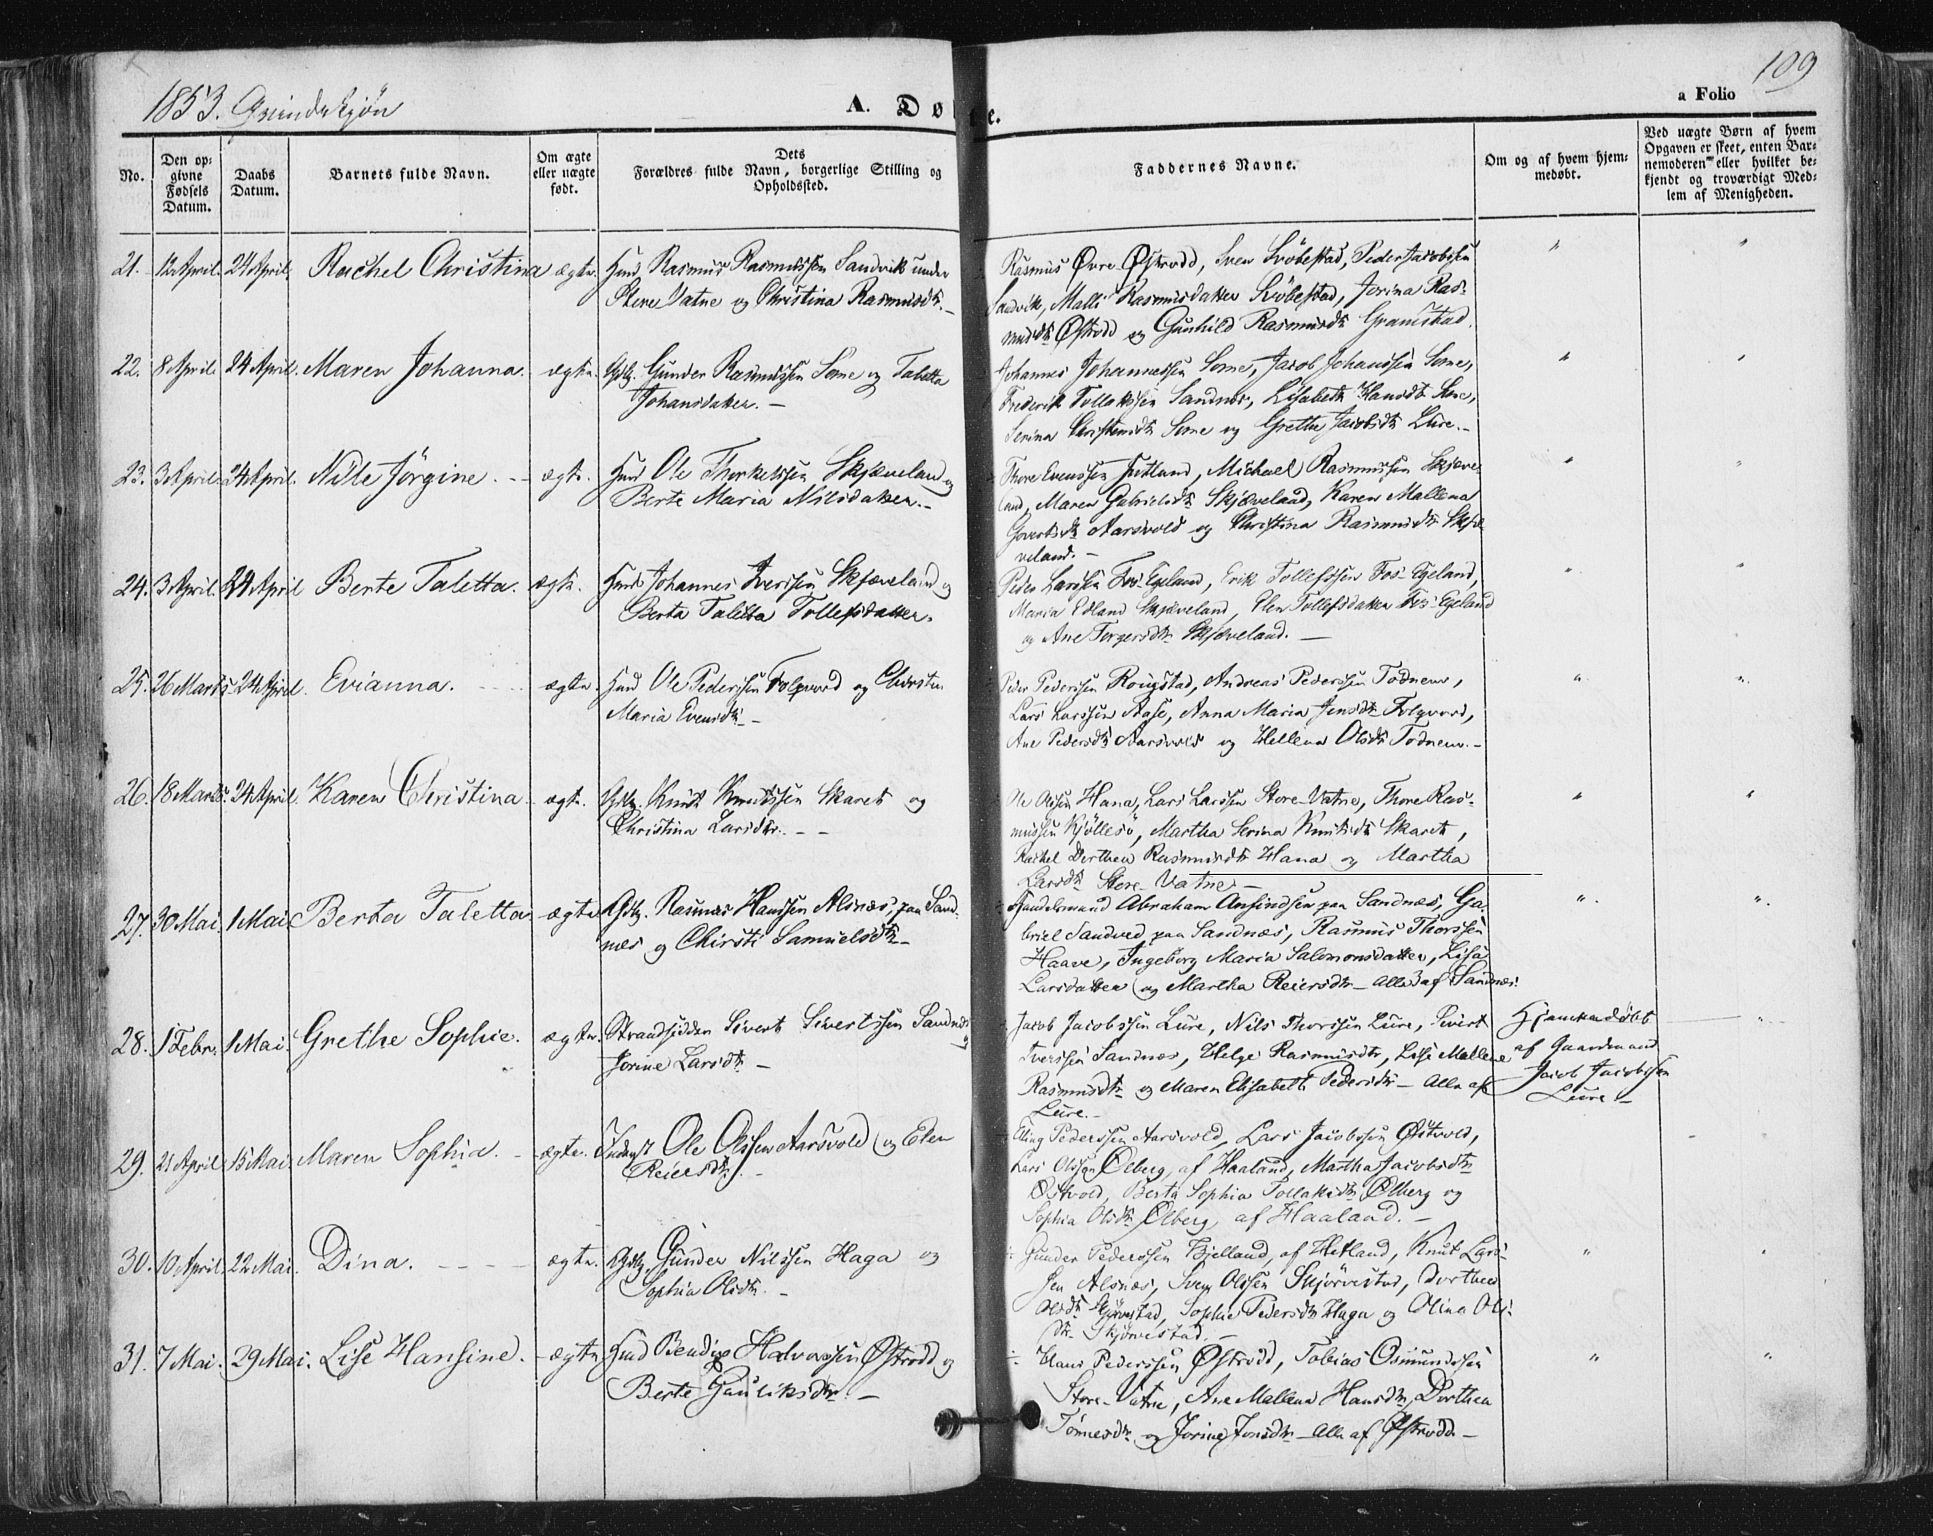 1853. Qvindekjøn
A. Døbte.
109
a Folio
No.
Den opgivne Fødsels Datum.
Daabs Datum.
Barnets fulde Navn.
Om ægte eller uægte født.
Dets Forældres fulde Navn, borgerlige Stilling og Opholdssted.
Faddernes Navne.
Om og af hvem hjemmedøbt.
Ved uægte Børn af hvem Opgaven er skeet, enten Barnemoderen eller hvilket bekjendt og troværdigt Medlem af Menigheden.
21. 12 April. 24 April. Rachel Christina ægte. Huusd Rasmus Rasmussen Sandvik under
Store Vatne og Christina Rasmusdtr. –
Rasmus Øvre-Østrodd, Sven Svöbestad, Peder Jacobsen
Sandvik, Malli Rasmusdatter Svöbestad, Jorina Ras-
musdtr Østrodd og Gunhild Rasmusdtr Gramstad.
22. 8 April. 24 April. Maren Johanna. ægte. Gdbg. Gunder Rasmussen Some og Taletta
Johansdatter. –
Johannes Johannessen Some, Jacob Johanssen Some,
Frederik Tollakssen Sandnes, Lisabeth Hansdtr Some,
Serina Christensdtr Some og Grethe Jacobsdtr Lure. –
23. 3 April. 24 April. Nille Jörgine. ægte. Huusd Ole Thorkelssen Skjæveland og
Berte Maria Nilsdatter. –
Thore Evenssen Jutland, Michael Rasmussen Skjæve-
land, Maren Gabrielsdtr Skjæveland, Karen Mallena
Govertsdtr Aarsvold og Christina Rasmusdtr Skjæ-
veland. –
24. 3 April. 24 April Berte Taletta. ægte. Huusd Johannes Iverssen Skjæveland og
Berta Taletta Tollefsdatter.
Peder Larssen Fos-Egeland, Erik Tollefssen Fos-Egeland,
Maria Edland Skjæveland, Elen Tollefsdatter Fos-Egeland
og Ane Torgersdtr Skjæveland. –
25. 26 Marts 24 April. Evianna. ægte. Huusd Ole Pederssen Folqvord og Chirstn
Maria Evensdtr –
Peder Pederssen Rougstad, Andreas Pederssen Todnem,
Lars Larssen Aase, Anna Maria Jensdtr Folqvord,
Ane Pedersdtr Aarsvold og Hellena Olsdtr Todnem. –
26. 18 Marts. 24 April. Karen Christina. ægte. Gdbg. Knut Knutssen Skaret og
Christina Larsdtr. –
Ole Olssen Hana, Lars Larssen Store-Vatne, Thore Ras-
mussen Kjöllesö, Martha Serina Knutsdtr Skaret,
Rachel Dorthea Rasmusdtr Hana og Martha
Larsdtr Store-Vatne –
27. 30 Mai. 1 Mai. Berta Taletta ægte Gdbg. Rasmus Hanssen Alsnæs, paa Sand-
næs og Chirsti Samuelsdtr –
Handelsmand Abraham Ansindsen paa Sandnæs, Ga-
briel Sandved paa Sandnæs, Rasmus Thorssen
Haave, Ingeborg Maria Salomonsdatter, Lisa
Larsdatter og Martha Reiersdtr – alle 3 af Sandnæs.
28. 1 Febr. 1 Mai. Grethe Sophie. ægte. Strandsidder Sivert Sivertssen Sandnæs og
Jorine Larsdtr –
Jacob Jacobssen Lure, Nils Thorssen Lure, Sivert
Iverssen Sandnæs, Helge Rasmusdtr, Lise Mallene
Rasmusdtr og Maren Elisabeth Pedersdtr – Alle af
Lure. –
Hjemmedøbt
af Gaardmand
Jacob Jacobssen
Lure –
29. 21 April 15 Mai. Maren Sophia. ægte. Inderst Ole Olssen Aarsvold og Elen
Reiersdtr. –
Eling Pederssen Aarsvold, Lars Jacobssen Østvold,
Lars Olssen Ølberg af Haaland, Martha Jacobsdtr
Østvold, Berta Sophia Tollaksdtr Ølberg og
Sophia Olsdtr Ølberg af Haaland. –
30. 10 April. 22 Mai. Dina. ægte. Gdbg. Gunder Nilssen Haga og
Sophia Olsdtr. –
Gunder Pederssen Bjelland, af Hetland, Knut Lars-
sen Alsnæs, Sven Olssen Skjörvestad, Dorthea
Olsdtr Skjörvestad, Sophie Pedersdtr Haga og Olina Ols-
dtr Skjörvestad. –
31. 7 Mai. 29 Mai. Lise Hansine. ægte Huusd Bendix Halvorssen Østrodd og
Berte Gauliksdtr. –
Hans Pederssen Østrodd, Tobias Osmundssen
Store-Vatne, Ane Mallena Hansdtr, Dorthea
Tönnesdtr og Jorine Jonsdtr – Alle af Østrodd –